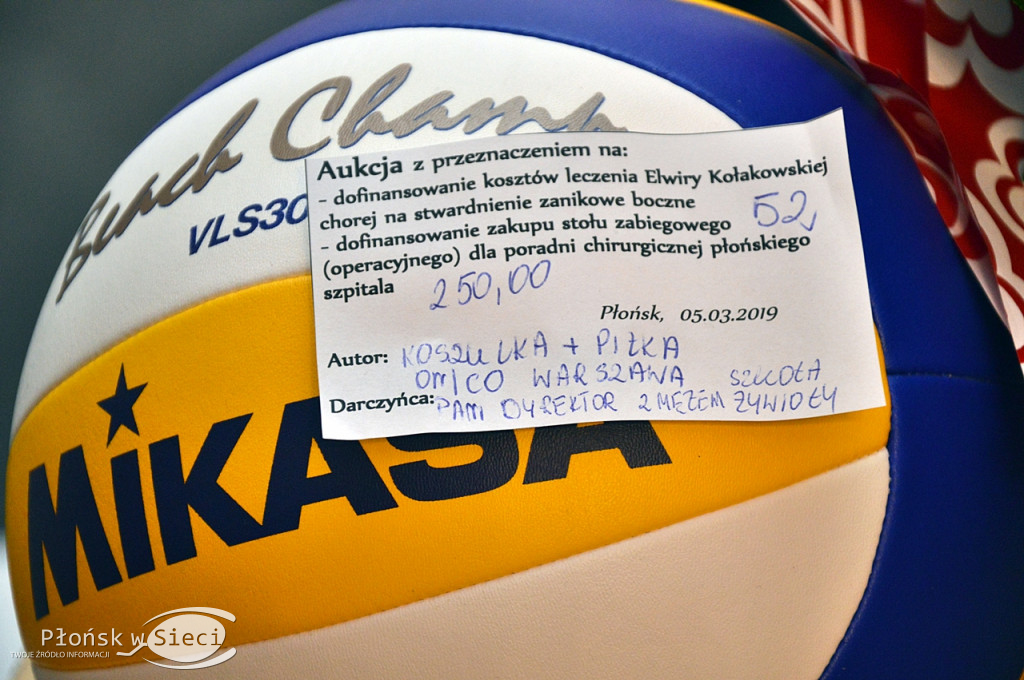 Beach Champ
VLS30
Aukcja z przeznaczeniem na:
- dofinansowanie kosztów leczenia Elwiry Kołakowskiej
chorej na stwardnienie zanikowe boczne
52
- dofinansowanie zakupu stołu zabiegowego
(operacyjnego) dla poradni chirurgicznej płońskiego
szpitala 250,00
Płońsk, 05.03.2019
Autor: KOSZULKA + PIŁKA
ONICO WARSZAWA SZKOŁA
Darczyńca: PANI DYREKTOR Z MĘŻEM ŻYWIOŁY
MIKASA
Płońsk w Sieci
TWOJE ŹRÓDŁO INFORMACJI